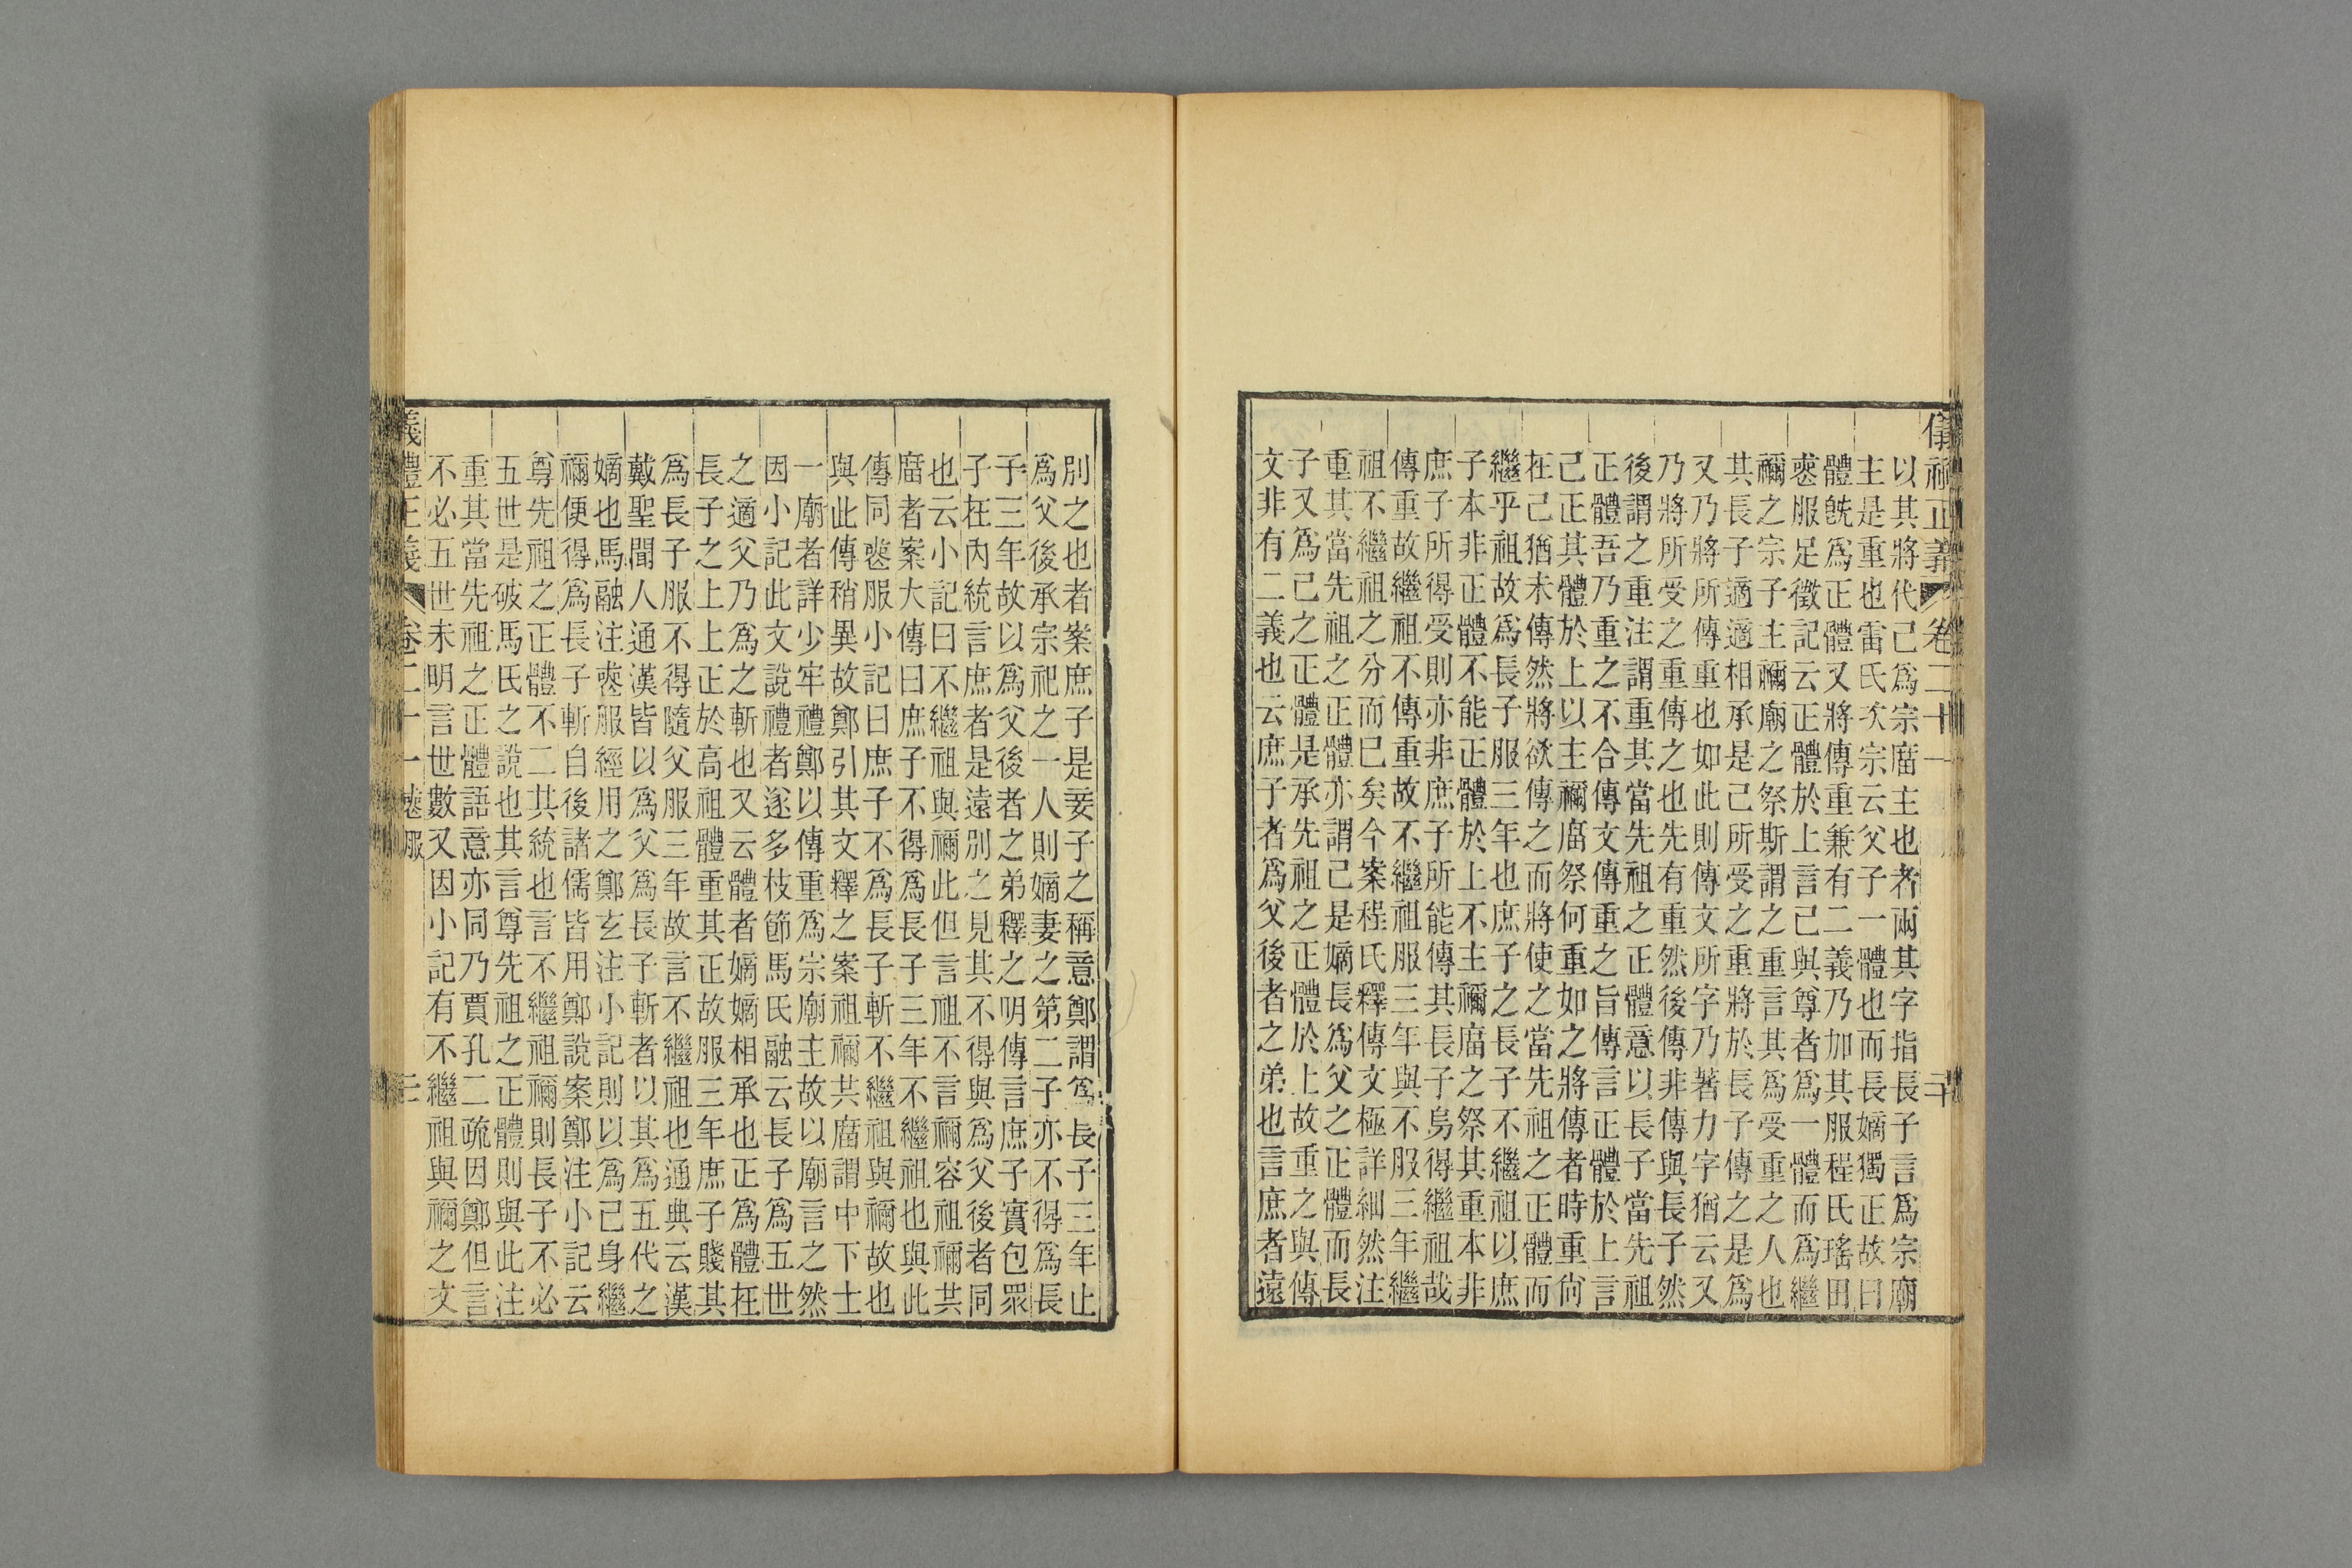 儀禮正義 卷二十一 二十
以其將代己爲宗廟主也者兩其字指長子言爲宗廟
主是重也雷氏次宗云父子一體也而長嫡獨正故曰
體旣爲正體又將傳重兼有二義乃加其服程氏瑤田
喪服足徵記云正體於上言己與尊者爲一體而爲繼
禰之宗子主禰廟之祭斯謂之重言其爲受重之人也
其長子適適相承是己所受之重將於長子傳之是爲
又乃將所傳重也如此則傳文所字乃著力字猶云又
乃將所受之重傳之也先有重然後傳非傳與長子然
後謂之重注謂重其當先祖之正體意以長子當先祖
正體吾乃重之不合傳文傳重之旨傳言正體於上言
己正其體於上以主禰廟祭何重如之將傳者時重尙
在己猶未傳然將欲傳之而將使之當先祖之正體而
繼乎祖故爲長子服三年也庶子之長子不繼祖以庶
子本非正體不能正體於上不主禰廟之祭其重本非
庶子所得受則亦非庶子所能傳其長子烏得繼祖哉
傳重故繼祖不傳重故不繼祖服三年與不服三年繼
祖不繼祖之分而已矣今案程氏釋傳文極詳細然注
重其當先祖之正體亦謂己是嫡長爲父之正體而長
子又爲己之正體是承先祖之正體於上故重之與傳
文非有二義也云庶子者爲父後者之弟也言庶者遠
別之也者案庶子是妾子之稱意鄭謂爲長子三年止
爲父後承宗祀之一人則嫡妻之第二子亦不得爲長
子三年故以爲父後者之弟釋之明傳言庶子實包眾
子在內統言庶者是遠別之見其不得與爲父後者同
也云小記曰不繼祖與禰此但言祖不言禰容祖禰共
廟者案大傳曰庶子不得爲長子三年不繼祖也與此
傳同喪服小記曰庶子不爲長子斬不繼祖與禰故也
與此傳稍異故鄭引其文釋之案祖禰共廟謂中下士
一廟者詳少牢禮鄭以傳重爲宗廟主故以廟言之然
因小記此文說禮者遂多枝節馬氏融云長子爲五世
之適父乃爲之斬也又云體者嫡嫡相承也正爲體在
長子之上上正於高祖體重其正故服三年庶子賤其
爲長子服不得隨父服三年故言不繼祖也通典云漢
戴聖聞人通漢皆以爲父爲長子斬者以其爲五代之
嫡也馬融注喪服經用之鄭玄注小記則以爲己身繼
禰便得爲長子斬自後諸儒皆用鄭說案鄭注小記云
尊先祖之正體不二其統也言不繼祖禰則長子不必
五世是破馬氏之說也其言尊先祖之正體則與此注
重其當先祖之正體語意亦同乃賈孔二疏因鄭但言
不必五世未明言世數又因小記有不繼祖與禰之文
禮正義 卷二十一 喪服